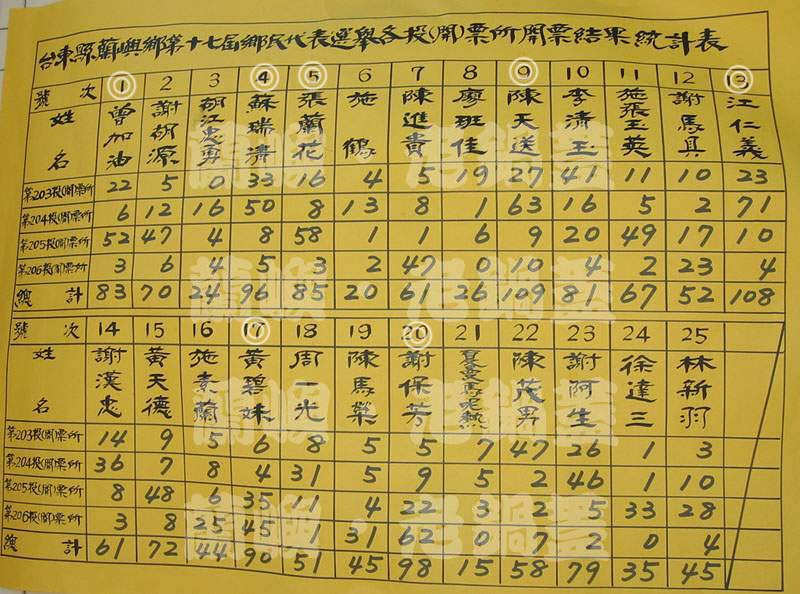 台東縣蘭嶼鄉第十七屆鄉民代表選舉各投(開)票所開票結果統計表
號次 1 2 3 4 5 6 7 8 9 10 11 12 13
姓名 曾加油 謝胡源 胡江忠勇 蘇瑞清 張蘭花 施鶴 陳進貴 廖班佳 陳天送 李清玉 施張玉英 謝馬具 江仁義
第203投(開)票所 22 5 0 33 16 4 5 19 27 41 11 10 23
第204投(開)票所 6 12 16 50 8 13 8 1 63 16 5 2 71
第205投(開)票所 52 47 4 8 58 1 1 6 9 20 49 17 10
第206投(開)票所 3 6 4 5 3 2 47 0 10 4 2 23 4
總計 83 70 24 96 85 20 61 26 109 81 67 52 108
號次 14 15 16 17 18 19 20 21 22 23 24 25
姓名 謝漢忠 黃天德 施素蘭 黃碧妹 周一光 陳馬榮 謝保芳 夏曼 陳茂男 謝阿生 徐達三 林新羽
第203投(開)票所 14 9 5 6 8 5 5 7 47 26 1 3
第204投(開)票所 36 7 8 4 31 5 9 5 2 46 1 10
第205投(開)票所 8 48 6 35 11 4 22 3 2 5 33 28
第206投(開)票所 3 8 25 45 1 31 62 0 7 2 0 4
總計 61 72 44 90 51 45 98 15 58 79 35 45
蘭嶼 鍋蓋
蘭嶼 鍋蓋
蘭嶼 鍋蓋
蘭嶼 鍋蓋
蘭嶼 鍋蓋